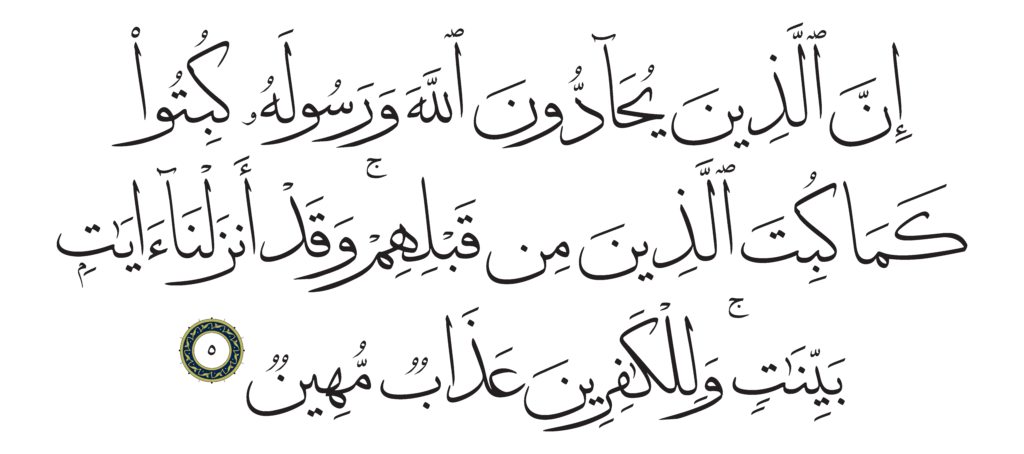 إِنَّ ٱلَّذِينَ يُحَآدُّونَ ٱللَّهَ وَرَسُولَهُۥ كُبِتُوا۟
كَمَا كُبِتَ ٱلَّذِينَ مِن قَبْلِهِمْ ۚ وَقَدْ أَنزَلْنَآ ءَايَـٰتٍۭ
بَيِّنَـٰتٍ ۚ وَلِلْكَـٰفِرِينَ عَذَابٌ مُّهِينٌ ٥